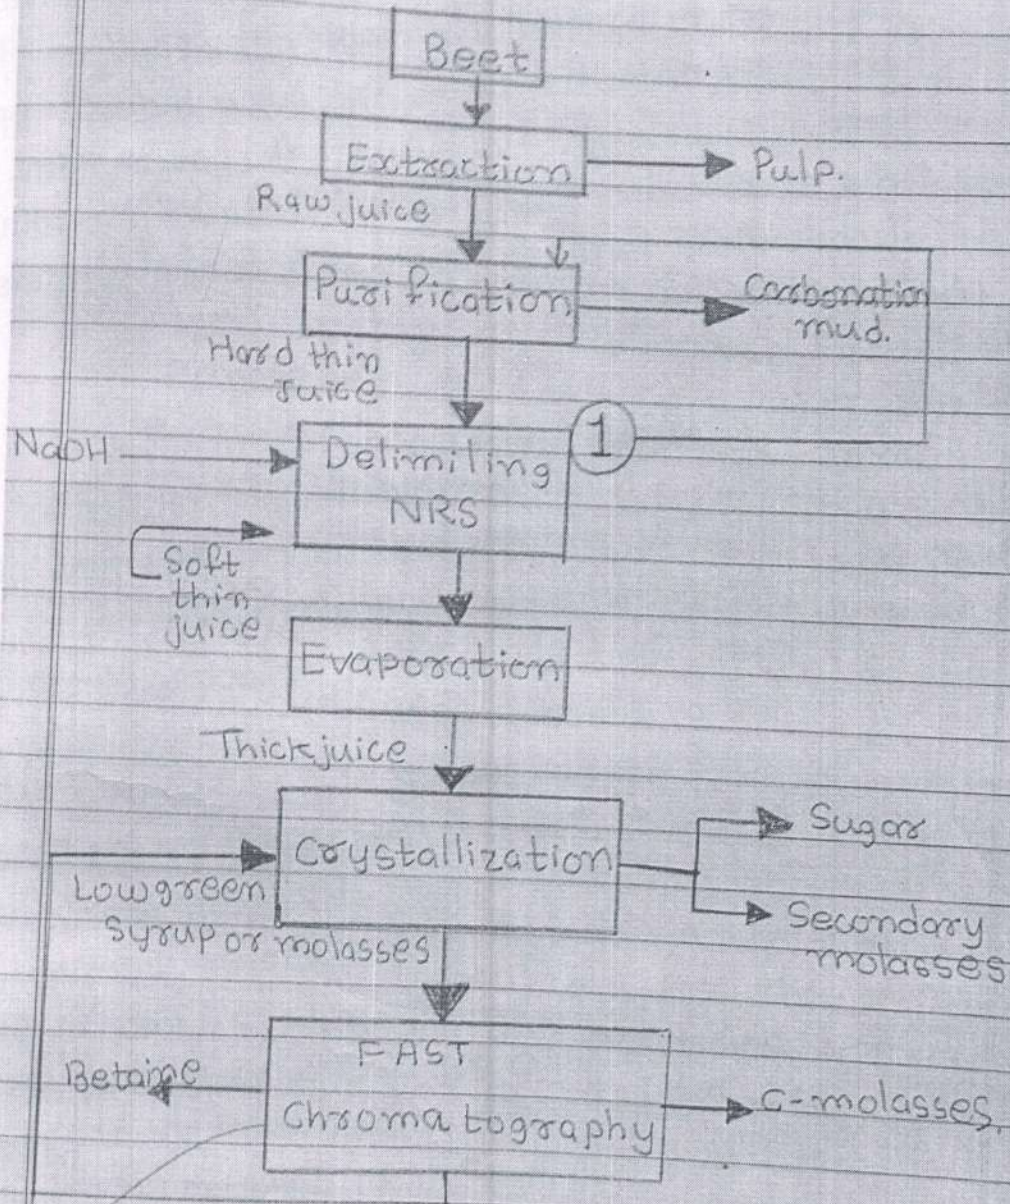 Beet
Extraction
Pulp.
Raw juice
Purification
Carbonation
mud.
Hard thin
Juice
1
NaOH
Delimiting
NRS
Soft
thin
juice
Evaporation
Thick juice
Crystallization
Sugar
Low green
Syrup or molasses
Secondary
molasses
FAST
Betaine
Chromatography
C-molasses.